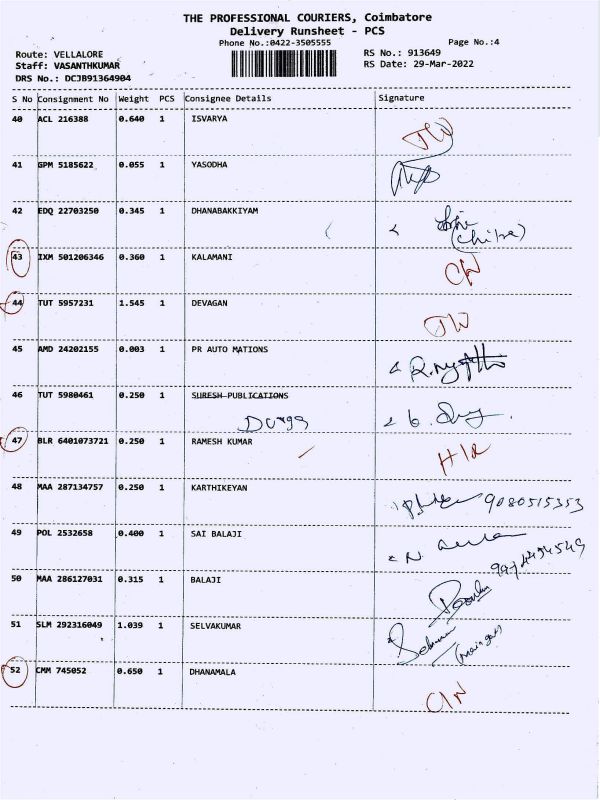 THE PROFESSIONAL COURIERS, Coimbatore
Delivery Runsheet - PCS
Phone No.:0422-3505555
Page No.:4
Route: VELLALORE
RS No.: 913649
Staff: VASANTHKUMAR
RS Date: 29-Mar-2022
DRS No.: DCJB91364904
S No Consignment No Weight PCS Consignee Details Signature
40 ACL 216388 0.640 1 ISVARYA
41 GPM 5185622 0.055 1 YASODHA
42 EDQ 22703250 0.345 1 DHANABAKKIYAM
(chitra)
43 IXM 501206346 0.360 1 KALAMANI
44 TUT 5957231 1.545 1 DEVAGAN
45 AMD 24202155 0.003 1 PR AUTO MATIONS
46 TUT 5980461 0.250 1 SURESH PUBLICATIONS
Durga
47 BLR 6401073721 0.250 1 RAMESH KUMAR
48 MAA 287134757 0.250 1 KARTHIKEYAN 9080515353
49 POL 2532658 0.400 1 SAI BALAJI
50 MAA 286127031 0.315 1 BALAJI
51 SLM 292316049 1.039 1 SELVAKUMAR
52 CMM 745052 0.650 1 DHANAMALA